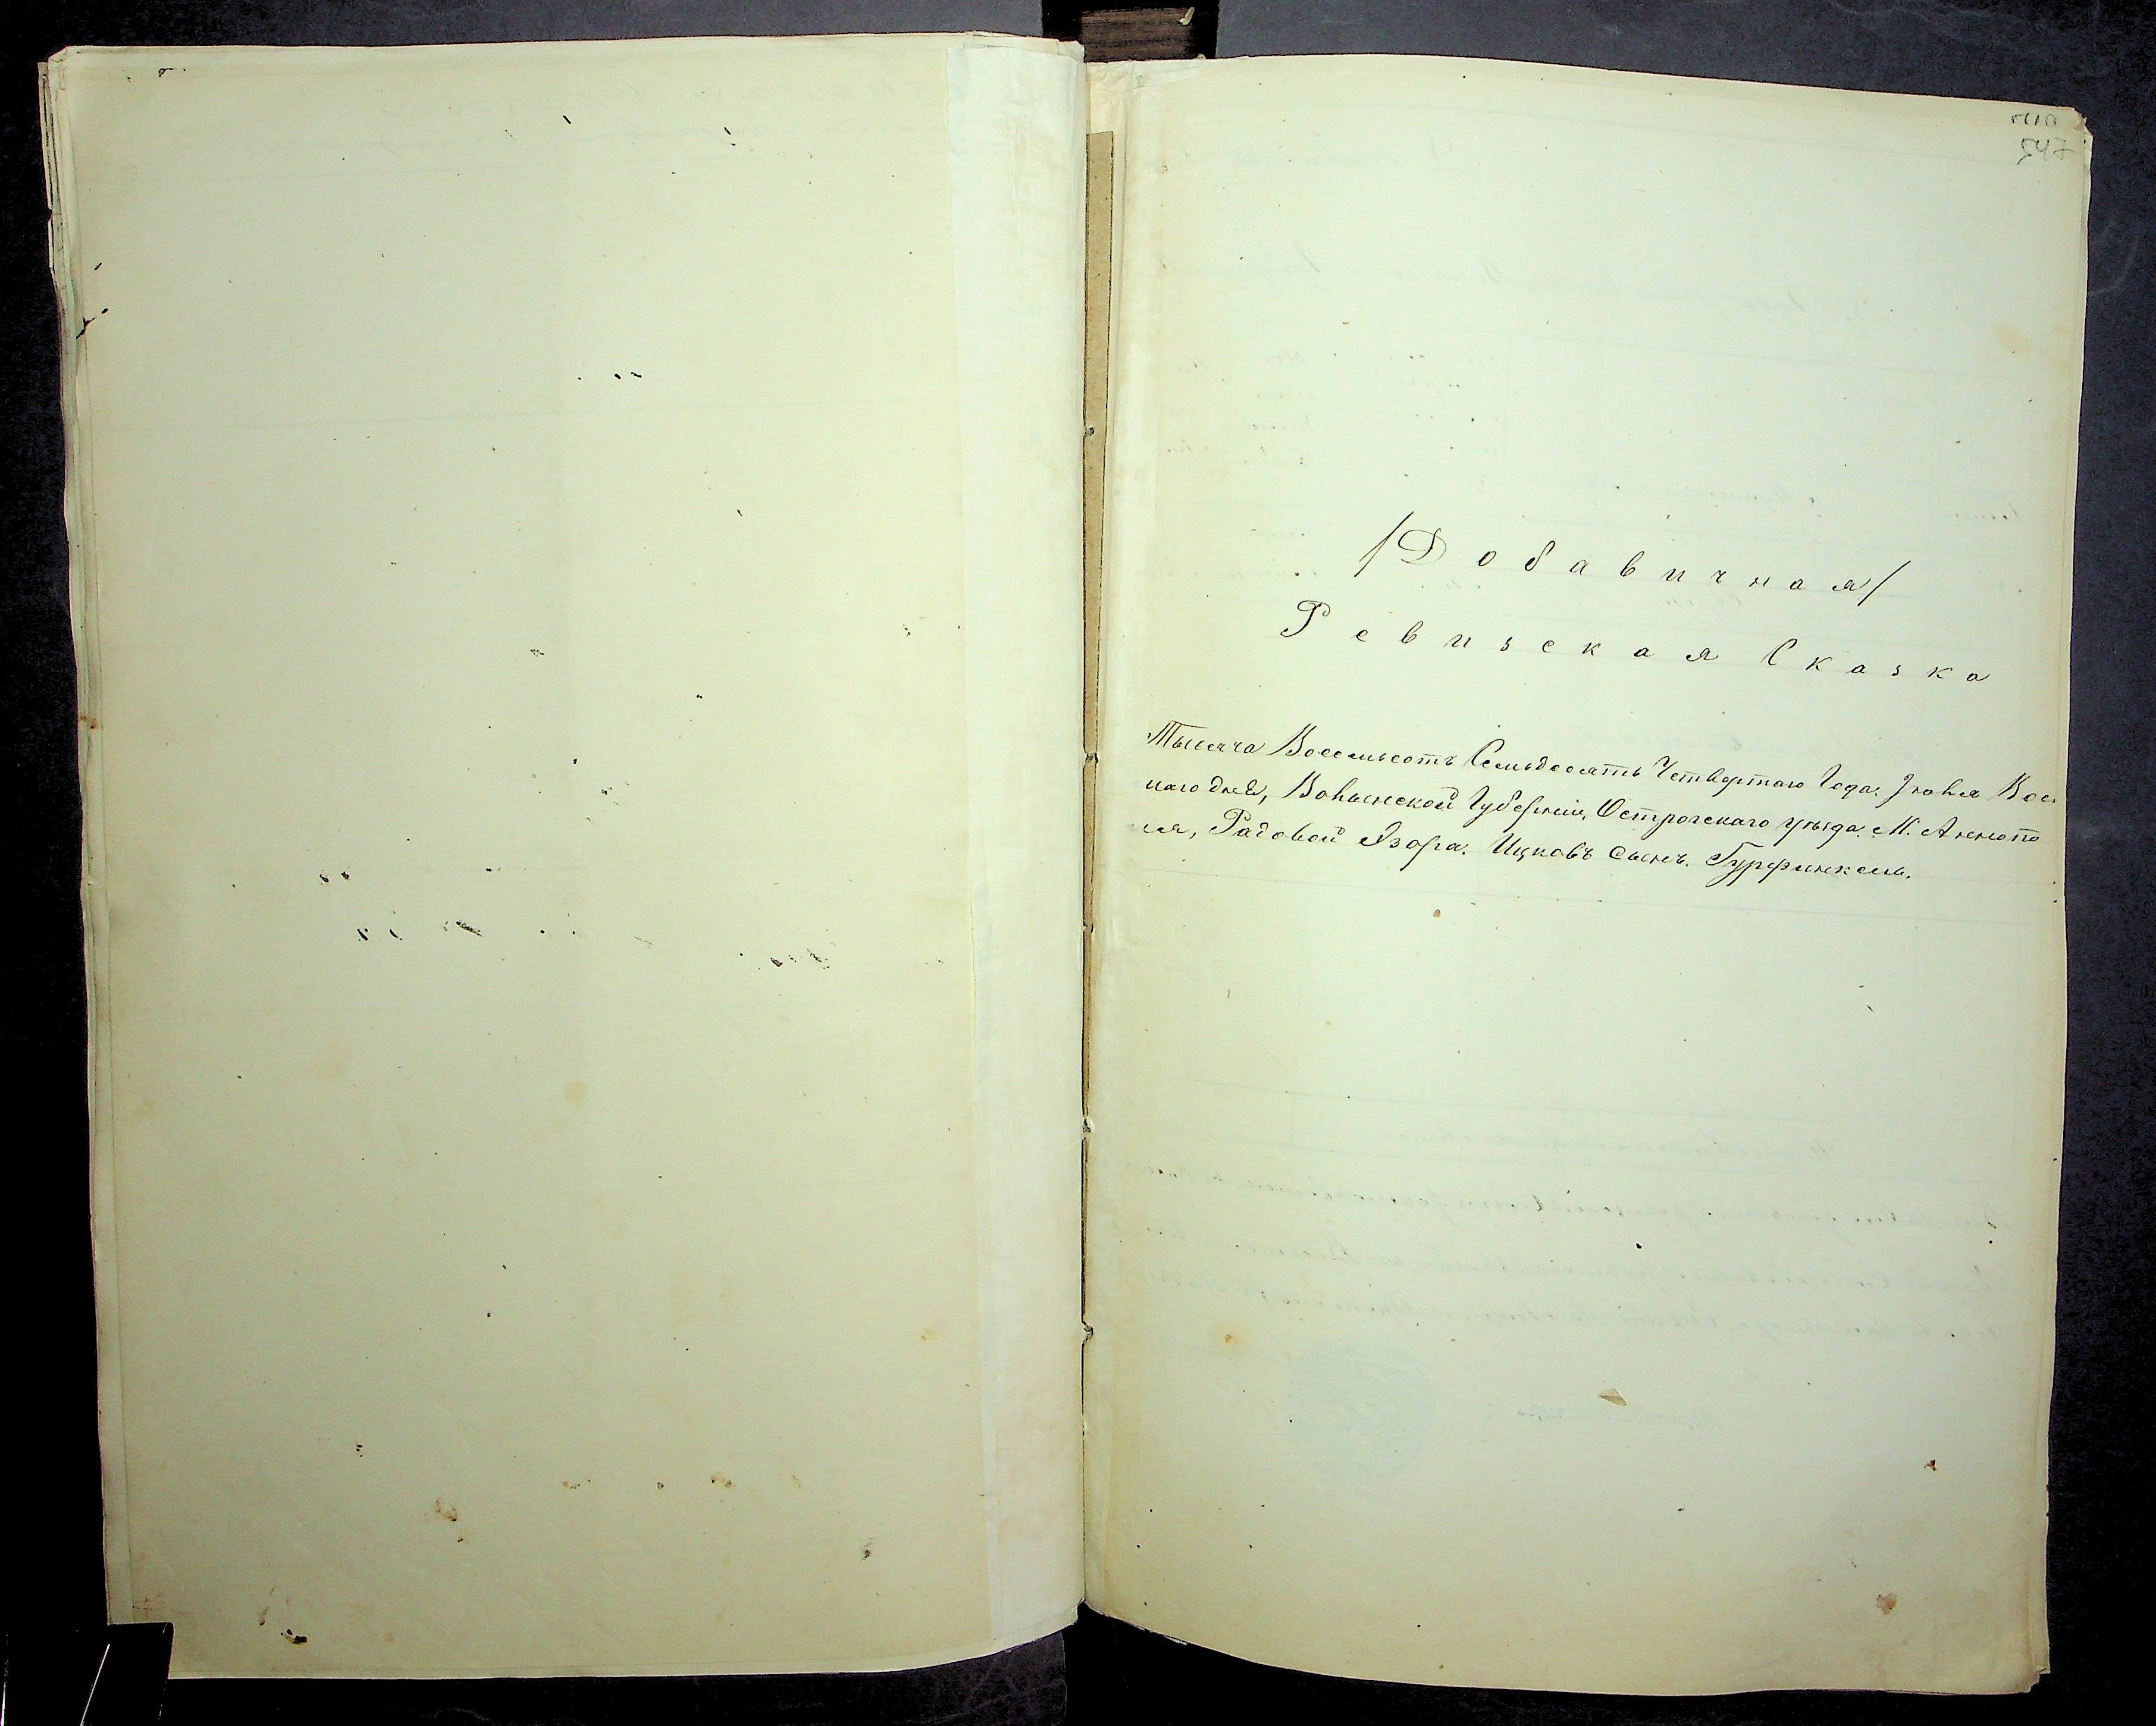 547
/Добавичная/
Ревизская Сказка
Тысяча Восемьсотъ Семьдесятъ Четвертаго Года. Іюня Вос
маго дня, Волынской Губерніи, Острогскаго уѣзда. М. Аннопо
ля, Рядовой Азора. Ицковъ сынъ. Гурфинкель.